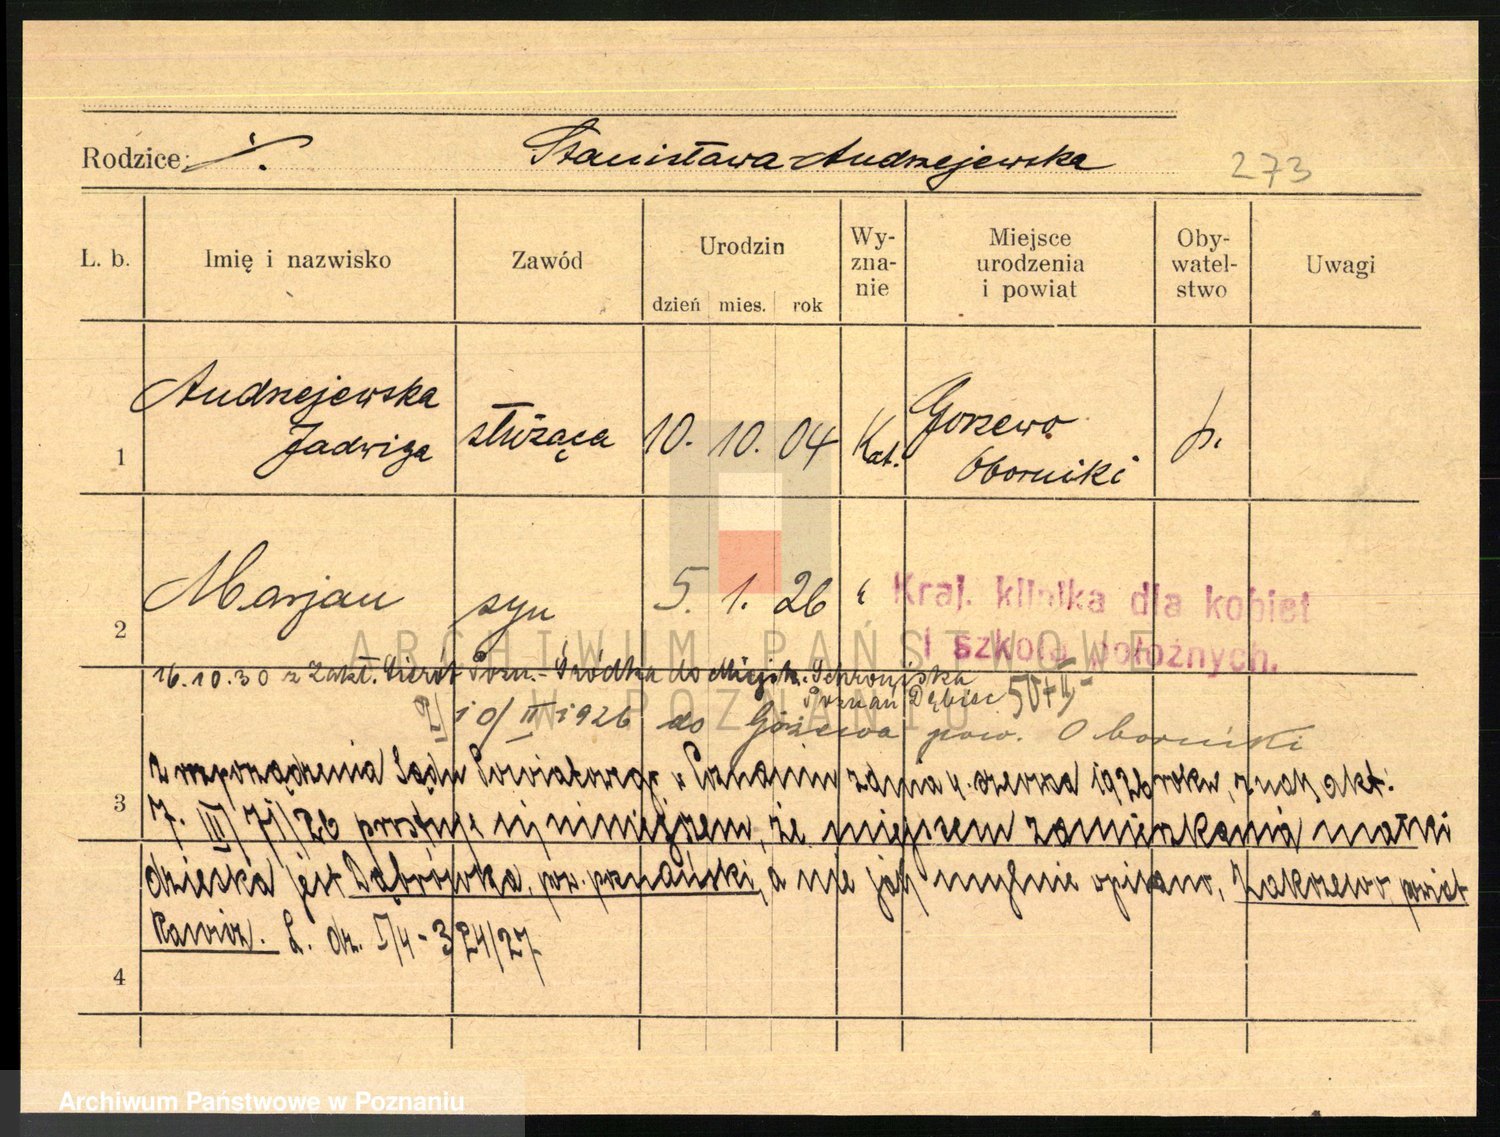 Rodzice: Stanisława Andrzejewska 273
L. b. Imię i nazwisko Zawód Urodzin dzień mies. rok Wy-zna-nie Miejsce urodzenia i powiat Oby-watel-stwo Uwagi
1 Andrzejewska Jadwiga służąca 10. 10. 04 Kat. Gorzewo Oborniki p.
2 Marjan syn 5. 1. 26 "
Kraj. klinika dla kobiet
i szkoła położnych.
ARCHIWUM PAŃSTWOWE
W POZNANIU
16.10.30 z Zakł. Sierót Pozn.-Śródka do Miejsk. Schroniska
Poznań Dębiec
10/II 1926 do Gorzewa pow. Oborniki
Z rozporządzenia Sądu Powiatowego w Poznaniu z dnia 4. czerwca 1926 roku, znak akt:
3 7. III/71/26 prostuje się niniejszem, że miejscem zamieszkania matki
dziecka jest Dąbrówka, pow. poznański, a nie jak mylnie opisano, Zakrzewo powiat
Rawicz. L. dz. I/4-324/27
4
Archiwum Państwowe w Poznaniu